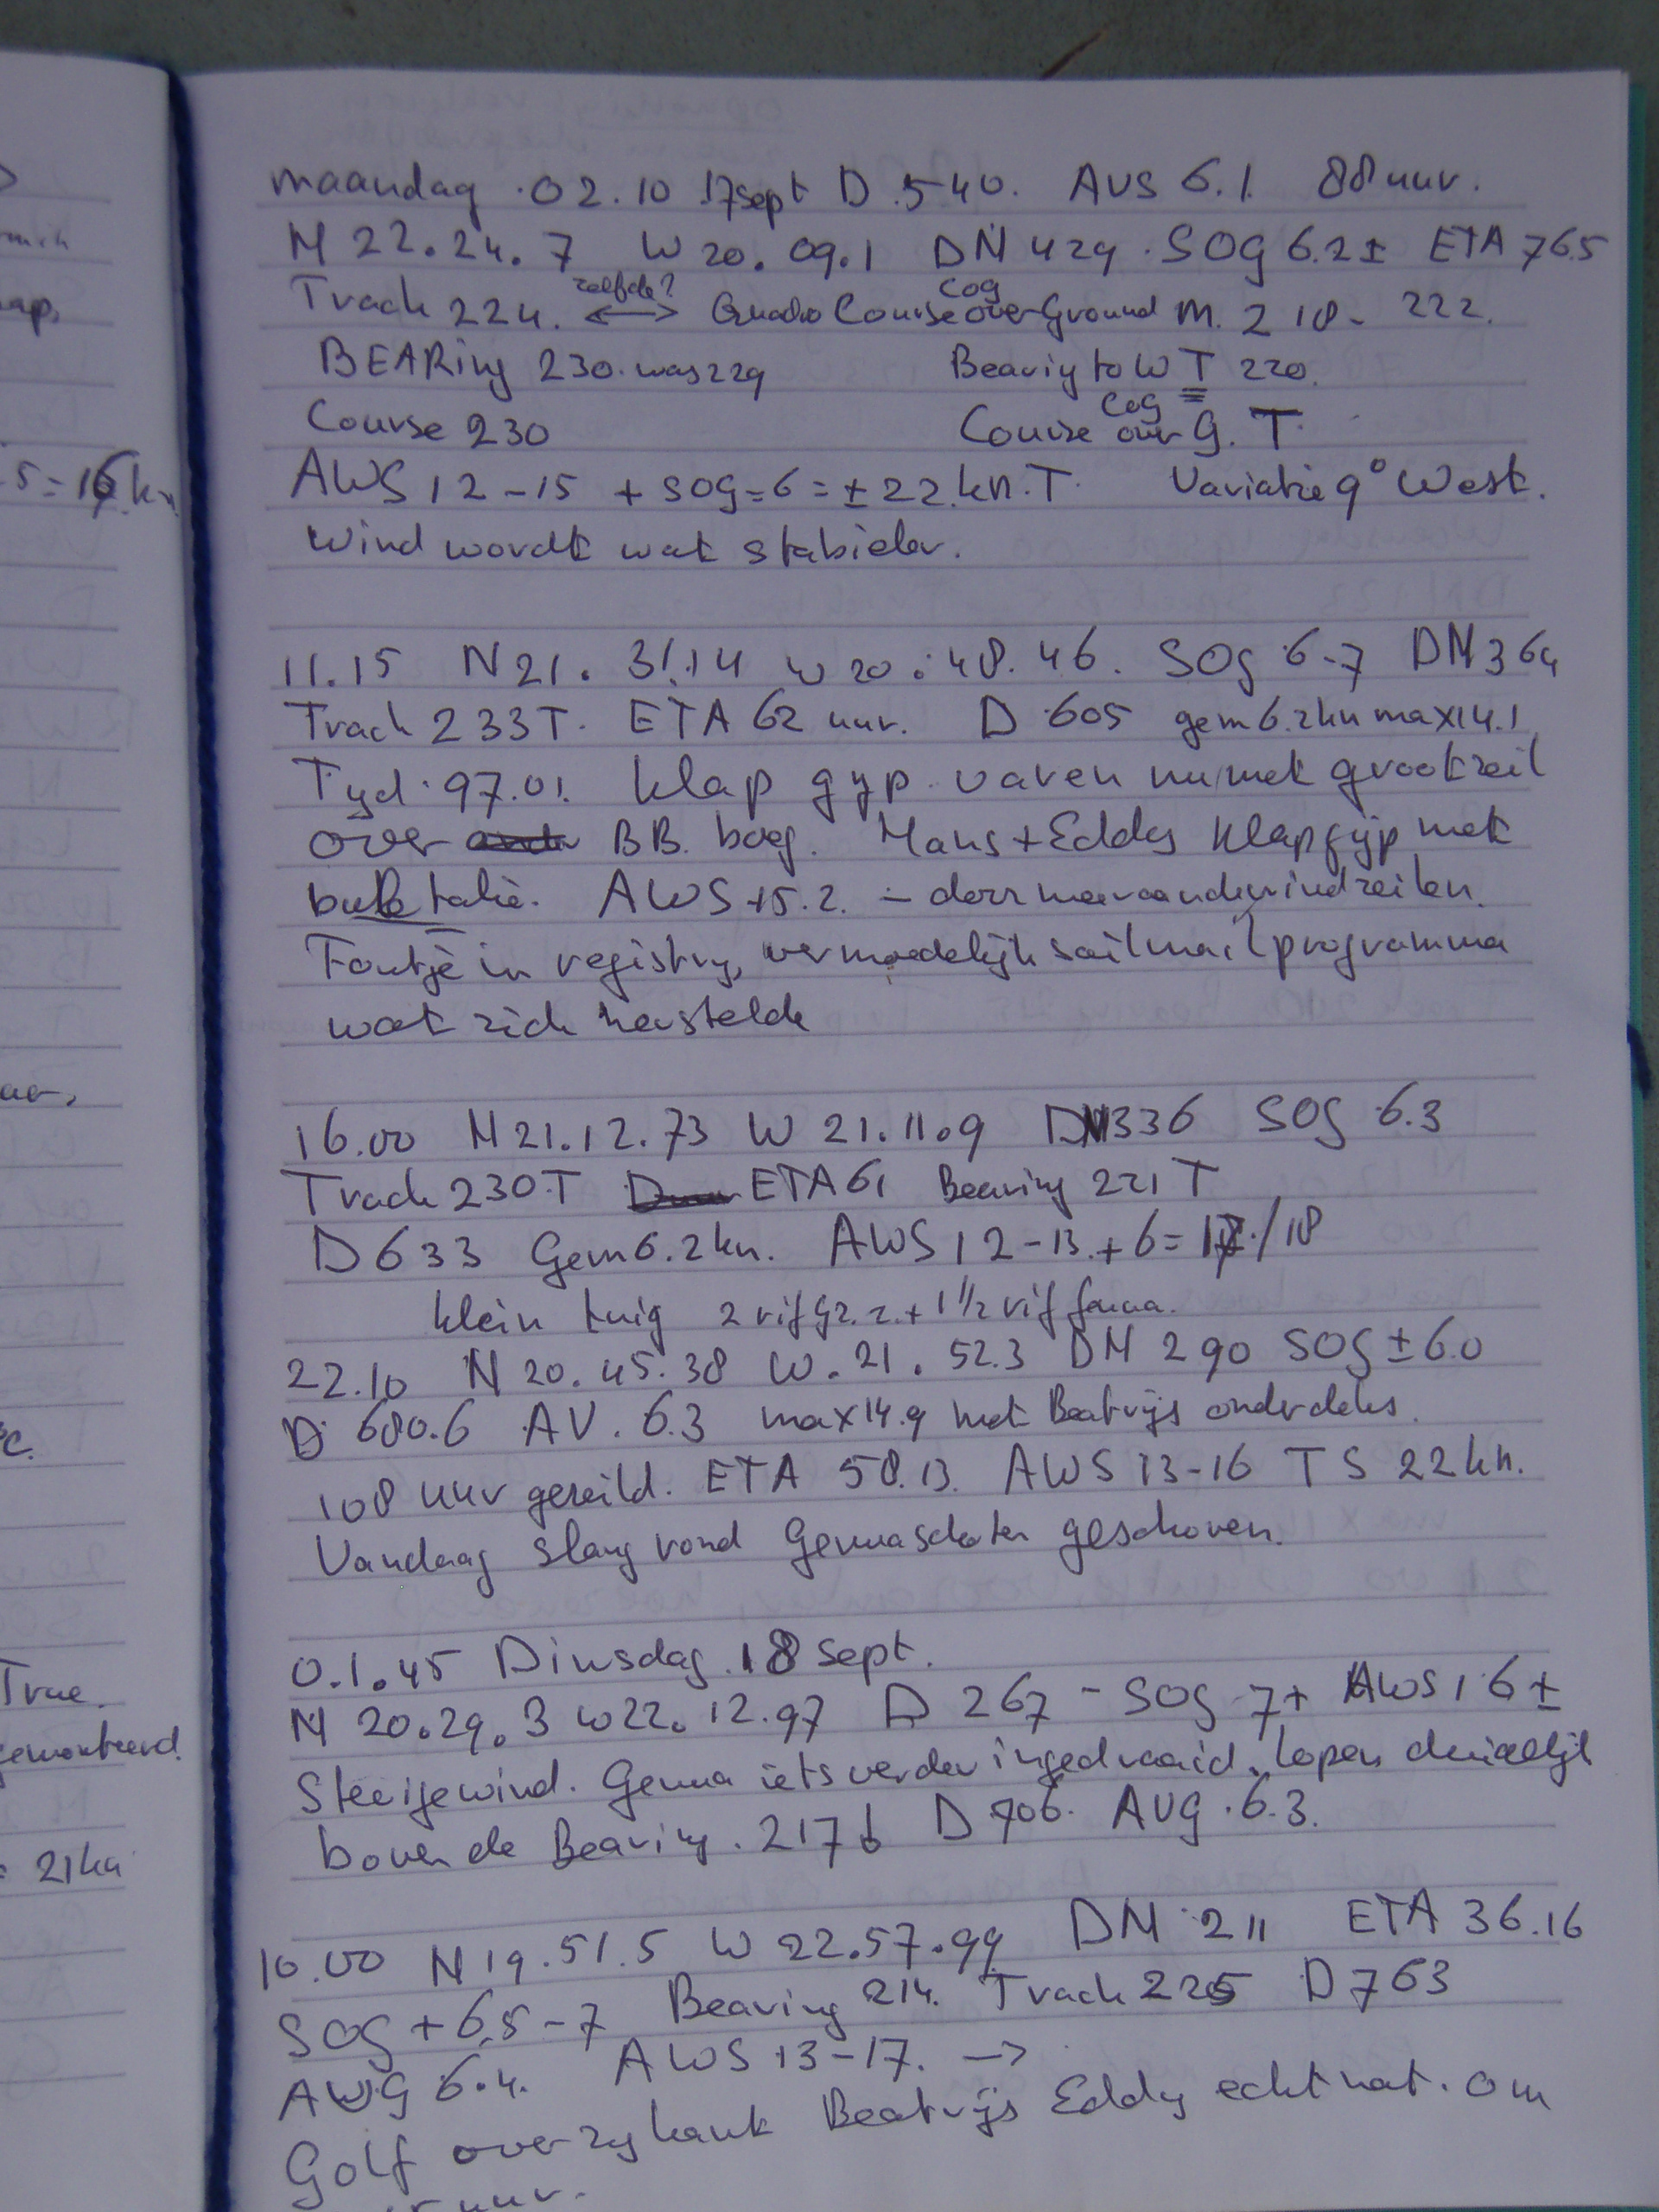 maandag .02.10 17sept D.540. AVS 6.1. 88 uur.
N 22.24.7 W 20.09.1 DN 429. SOG 6.2± ETA 76.5
Track 224. zelfde? ⟷ Course over Ground COG M. 218- 222.
BEARing 230. was 229 Bearing to W T 220.
Course 230 Course over G. T. COG
AWS 12-15 + SOG=6=±22.kn.T. Variatie 9° West.
Wind wordt wat stabieler.
11.15 N21. 31.14 W 20.48.46. SOG 6-7 DN 364
Track 233T. ETA 62 uur. D 605 gem 6.2kn max 14.1
Tyd.97.01. klap gyp. varen nu met grootzeil
over BB. boeg. Hans+Eddy klapgyp met
bulletalie. AWS 15.2. – door meer aandewind zeilen.
Foutje in registry, vermoedelijk sailmail programma
wat zich herstelde
16.00 N 21.12.73 W 21.11.9 DN 336 SOG 6.3
Track 230.T ETA 61 Bearing 221 T
D 633 Gem 6.2kn. AWS 12-13.+6= 17./18
klein tuig 2 rif gz.z.+ 1 1/2 rif genua.
22.10 N 20.45.38 W.21.52.3 DN 290 SOG ±6.0
D 680.6 AV. 6.3 max 14.9 met Beatrijs onderdeks.
108 uur gezeild. ETA 58.13. AWS 13-16 TS 22 kn.
Vandaag slang rond Genuaschoten geschoven.
0.1.45 Dinsdag 18 sept.
N 20.29.3 W22.12.97 D 267 - SOG 7+ AWS 16±
Steeije wind. Genua iets verder ingedraaid. Lopen duidelijk
boven de Bearing. 217 D 706. AVG.6.3.
10.00 N 19.51.5 W 22.57.99 DN 211 ETA 36.16
SOG + 6.5-7 Bearing 214. Track 225 D 763
AVG 6.4. AWS 13-17. →
Golf over zykant Beatrijs Eddy echt nat. Om
uur.
= 21kn
True.
gemonteerd.
5=16 kn